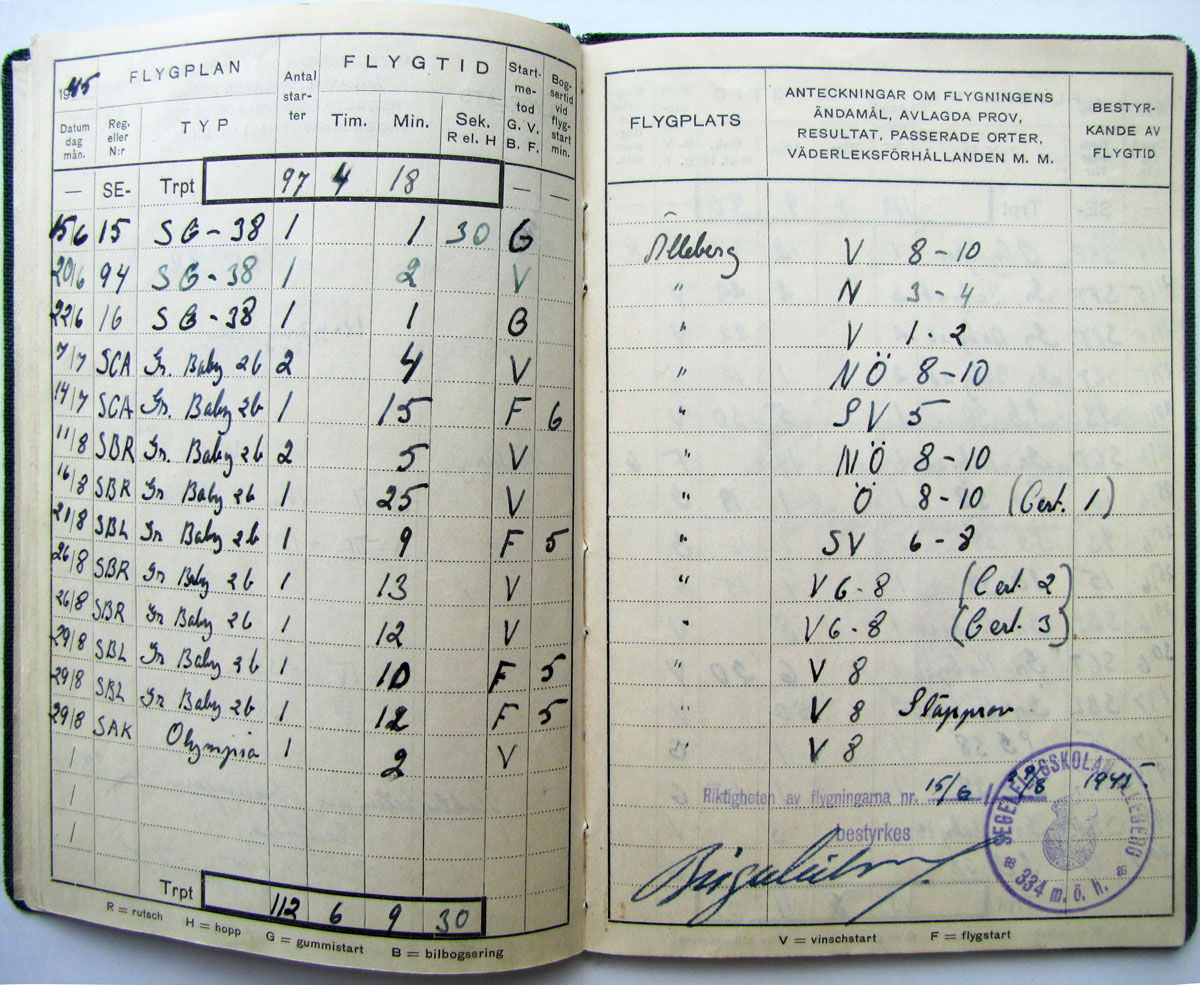 1945 FLYGPLAN Antal star- ter FLYGTID Start- me- tod G. V. B. F. Bog- sertid vid flyg- start min.
Datum dag mån. Reg. eller N:r TYP Tim. Min. Sek. R el. H
— SE- Trpt 97 4 18 — —
15/6 15 SG-38 1 1 30 G
20/6 94 SG-38 1 2 V
22/6 16 SG-38 1 1 G
7/7 SCA Gr. Baby 2b 2 4 V
14/7 SCA Gr. Baby 2b 1 15 F 6
11/8 SBR Gr. Baby 2b 2 5 V
16/8 SBR Gr Baby 2b 1 25 V
21/8 SBL Gr Baby 2b 1 9 F 5
26/8 SBR Gr Baby 2b 1 13 V
26/8 SBR Gr Baby 2b 1 12 V
29/8 SBL Gr Baby 2b 1 10 F 5
29/8 SBL Gr Baby 2b 1 12 F 5
29/8 SAK Olympia 1 2 V
/
/
/
Trpt 112 6 9 30
R = rutsch H = hopp G = gummistart B = bilbogsering
FLYGPLATS ANTECKNINGAR OM FLYGNINGENS ÄNDAMÅL, AVLAGDA PROV, RESULTAT, PASSERADE ORTER, VÄDERLEKSFÖRHÅLLANDEN M. M. BESTYR- KANDE AV FLYGTID
Ålleberg V 8-10
" N 3-4
" V 1-2
" NÖ 8-10
" SV 5
" NÖ 8-10
" Ö 8-10 (Cert. 1)
" SV 6-8
" V 6-8 (Cert. 2)
" V 6-8 (Cert. 3)
" V 8
" V 8 Släpprov
" V 8
Riktigheten av flygningarna nr. 15/6 29/8 1945
bestyrkes
SEGELFLYGSKOLAN ÅLLEBERG
334 m. ö. h.
V = vinschstart F = flygstart